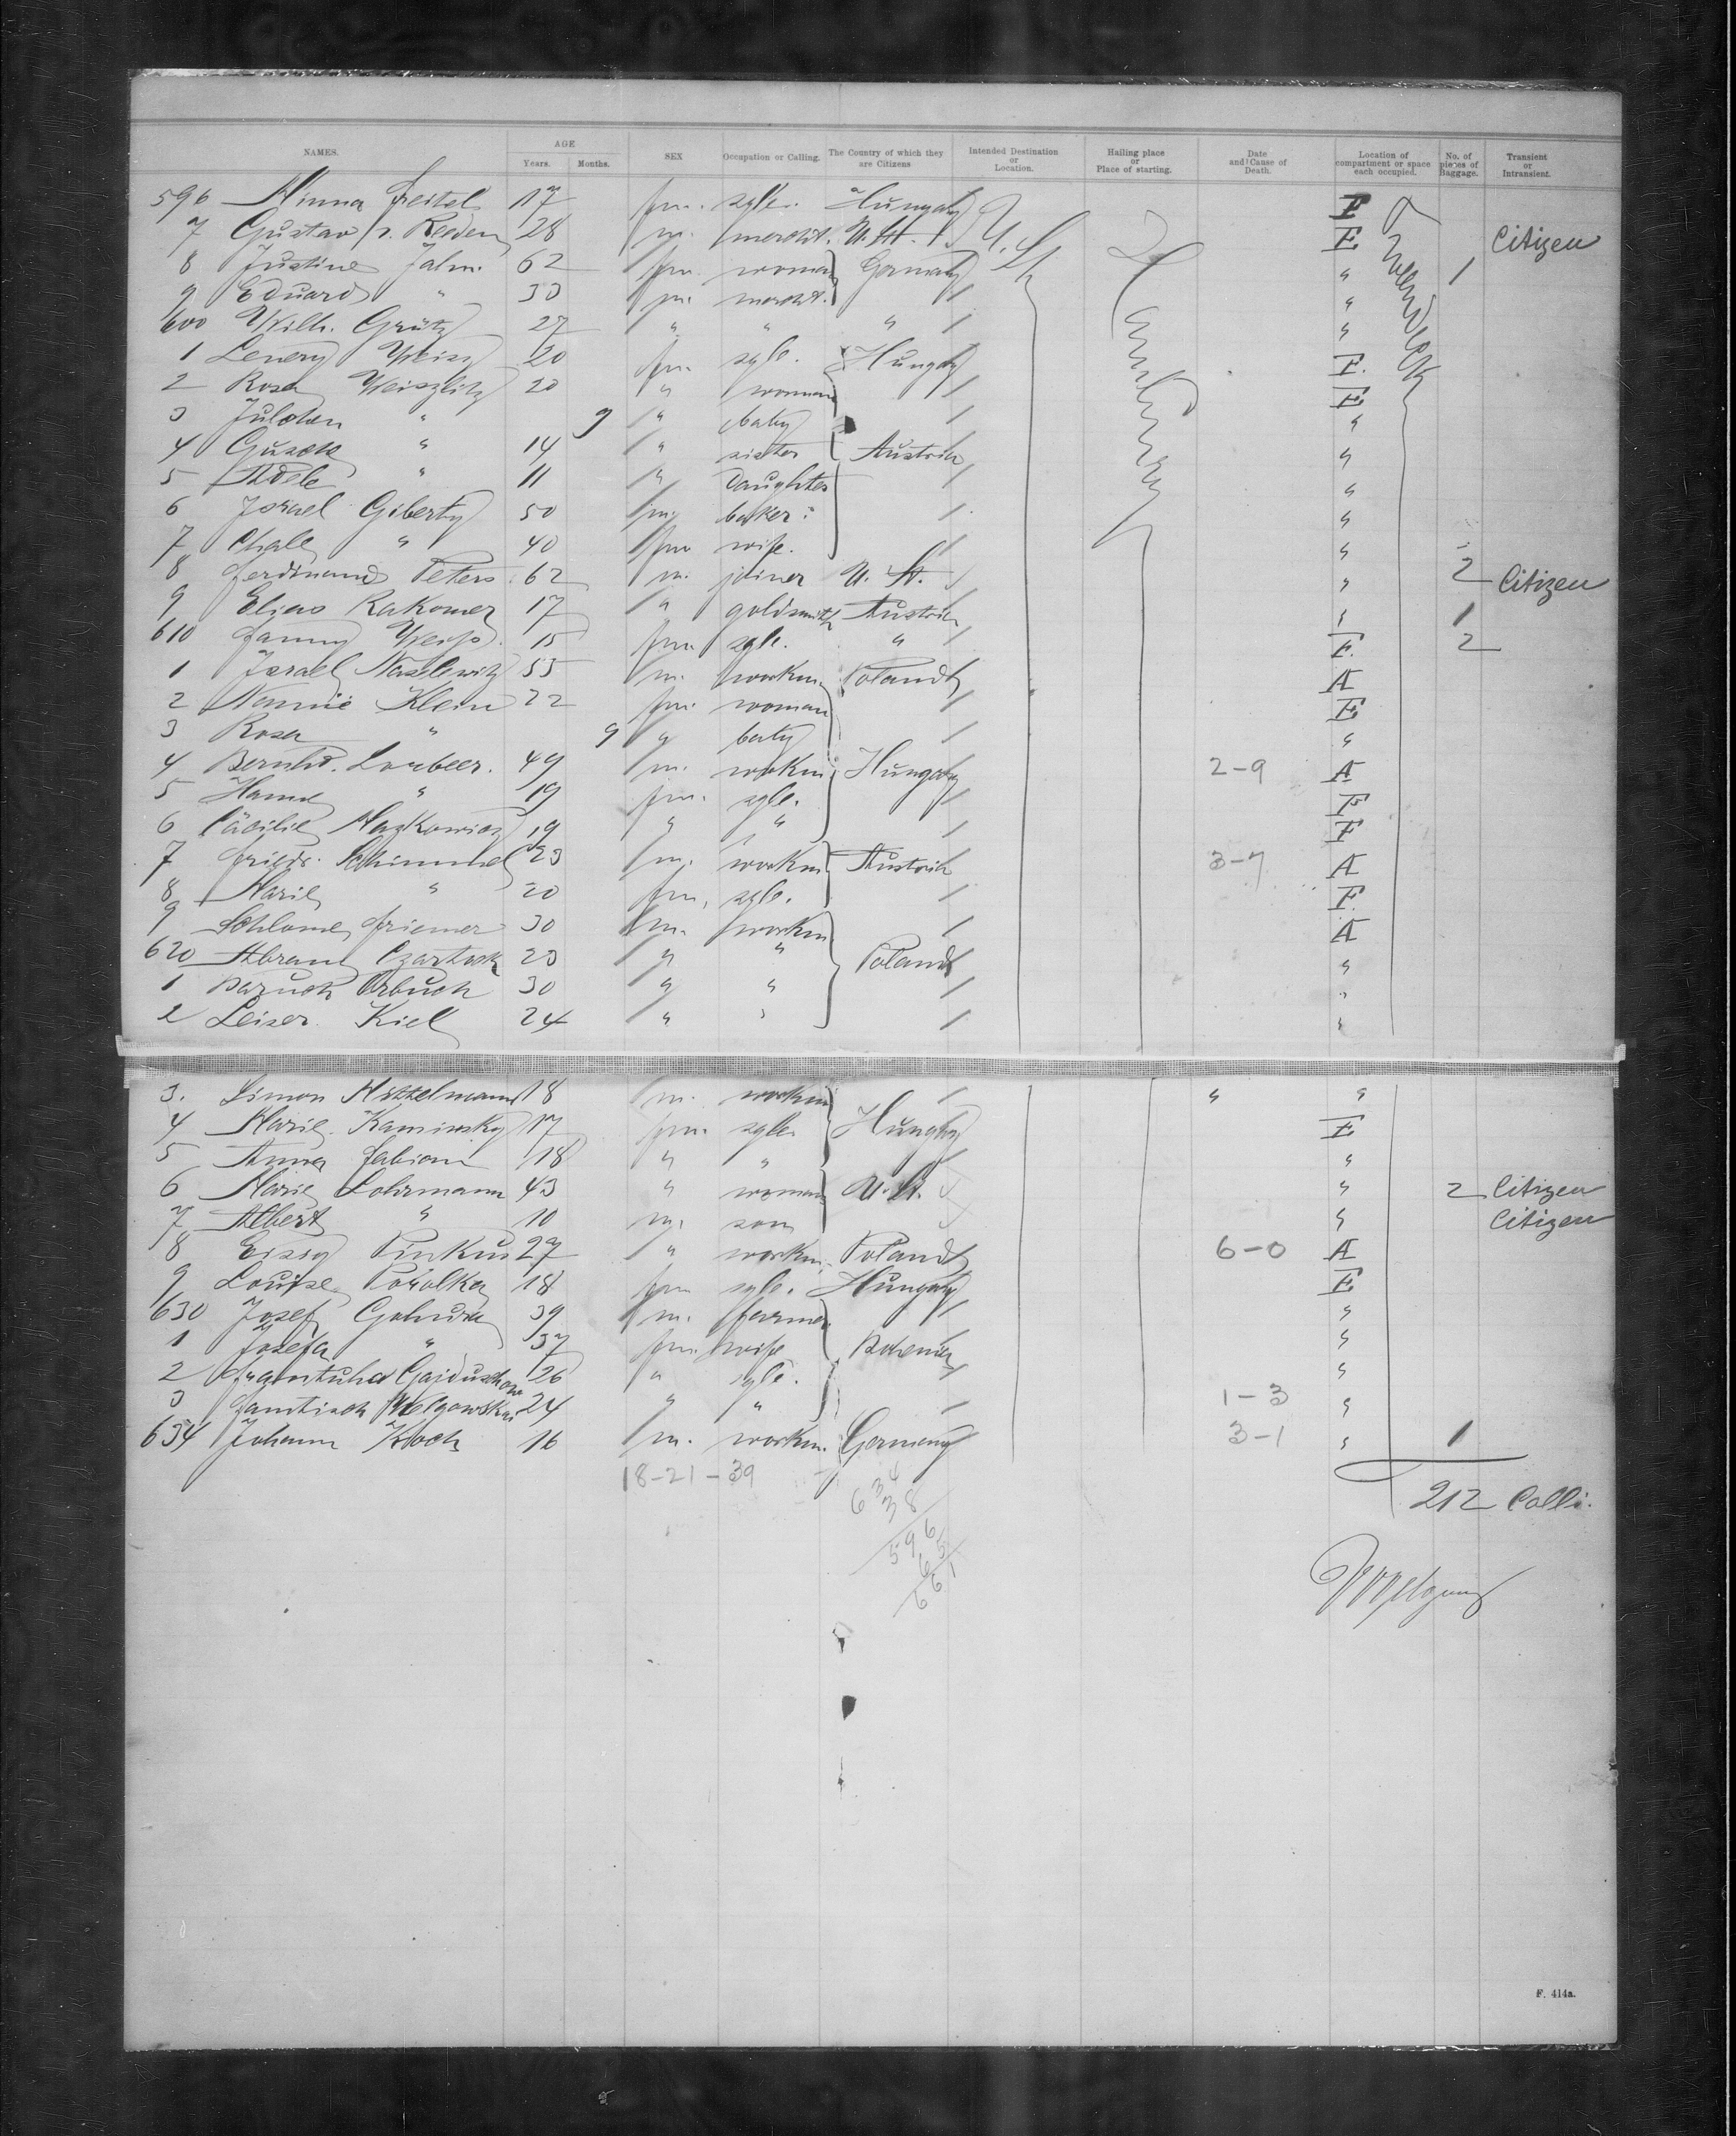 NAMES. AGE Years. Months. SEX Occupation or Calling. The Country of which they are Citizens Intended Destination or Location. Hailing place or Place of starting. Date and Cause of Death. Location of compartment or space each occupied. No. of pieces of Baggage. Transient or Intransient.
596 Minna Freitel 17 fm. sgle. Hungary U. St. F
7 Gustav v. Reeden 28 m. mercht. U. St. E Citizen
8 Justine Jahn 62 fm. woman Germany " 1
9 Eduard " 30 m. mercht. "
600 Wilh. Grütz 27 " " " "
1 Weisz 20 fm. sgle. Hungary F.
2 Rosa Weiszlitz 20 " woman E
3 " 9 " baby "
4 " 14 " sister Austria "
5 Adele " 11 " daughter "
6 Israel Giberty 50 m baker "
7 Chale " 40 fm wife. "
8 Ferdinand Peters 62 m. joiner U. St. " 2 Citizen
9 Elias Rakower 17 " goldsmith Austria " 1
610 Fanny 15 fm. sgle. " F. 2
1 Israel 55 m. workm. Poland A
2 Nannie Klein 22 fm. woman E
3 Rosa " 9 " baby "
4 Bernhd. Lorbeer. 49 m. workm Hungary 2-9 A
5 " 19 fm. sgle. F
6 Cäcilie 19 " " F
7 Friedr. Schimmel 23 m. workm Austria 3-7 A
8 Marie " 20 fm. sgle. F.
9 Schlome Friemer 30 m. workm A
620 Abram 23 " " Poland "
1 Baruch Orbuch 30 " " "
2 Leiser Kiel 24 " " "
3. Simon 18 m. workm " "
4 Marie Kaminsky 17 fm. sgle Hungary E
5 Anna Fabian 18 " " "
6 Marie Lohrmann 43 " woman U. St. " 2 Citizen
7 Albert " 10 m. son " Citizen
8 Eisig Pinkus 27 " workm. Poland 6-0 A
9 Louise 18 fm sgle. Hungary E
630 Josef 39 m. farmer "
1 Josefa " 37 fm. wife Bohemia "
2 26 " sgle. "
3 24 " " 1-3 "
634 Johann Koch 16 m. workm. Germany 3-1 " 1
18-21-39
634
38
596
65
661
212 Colli.
F. 414a.